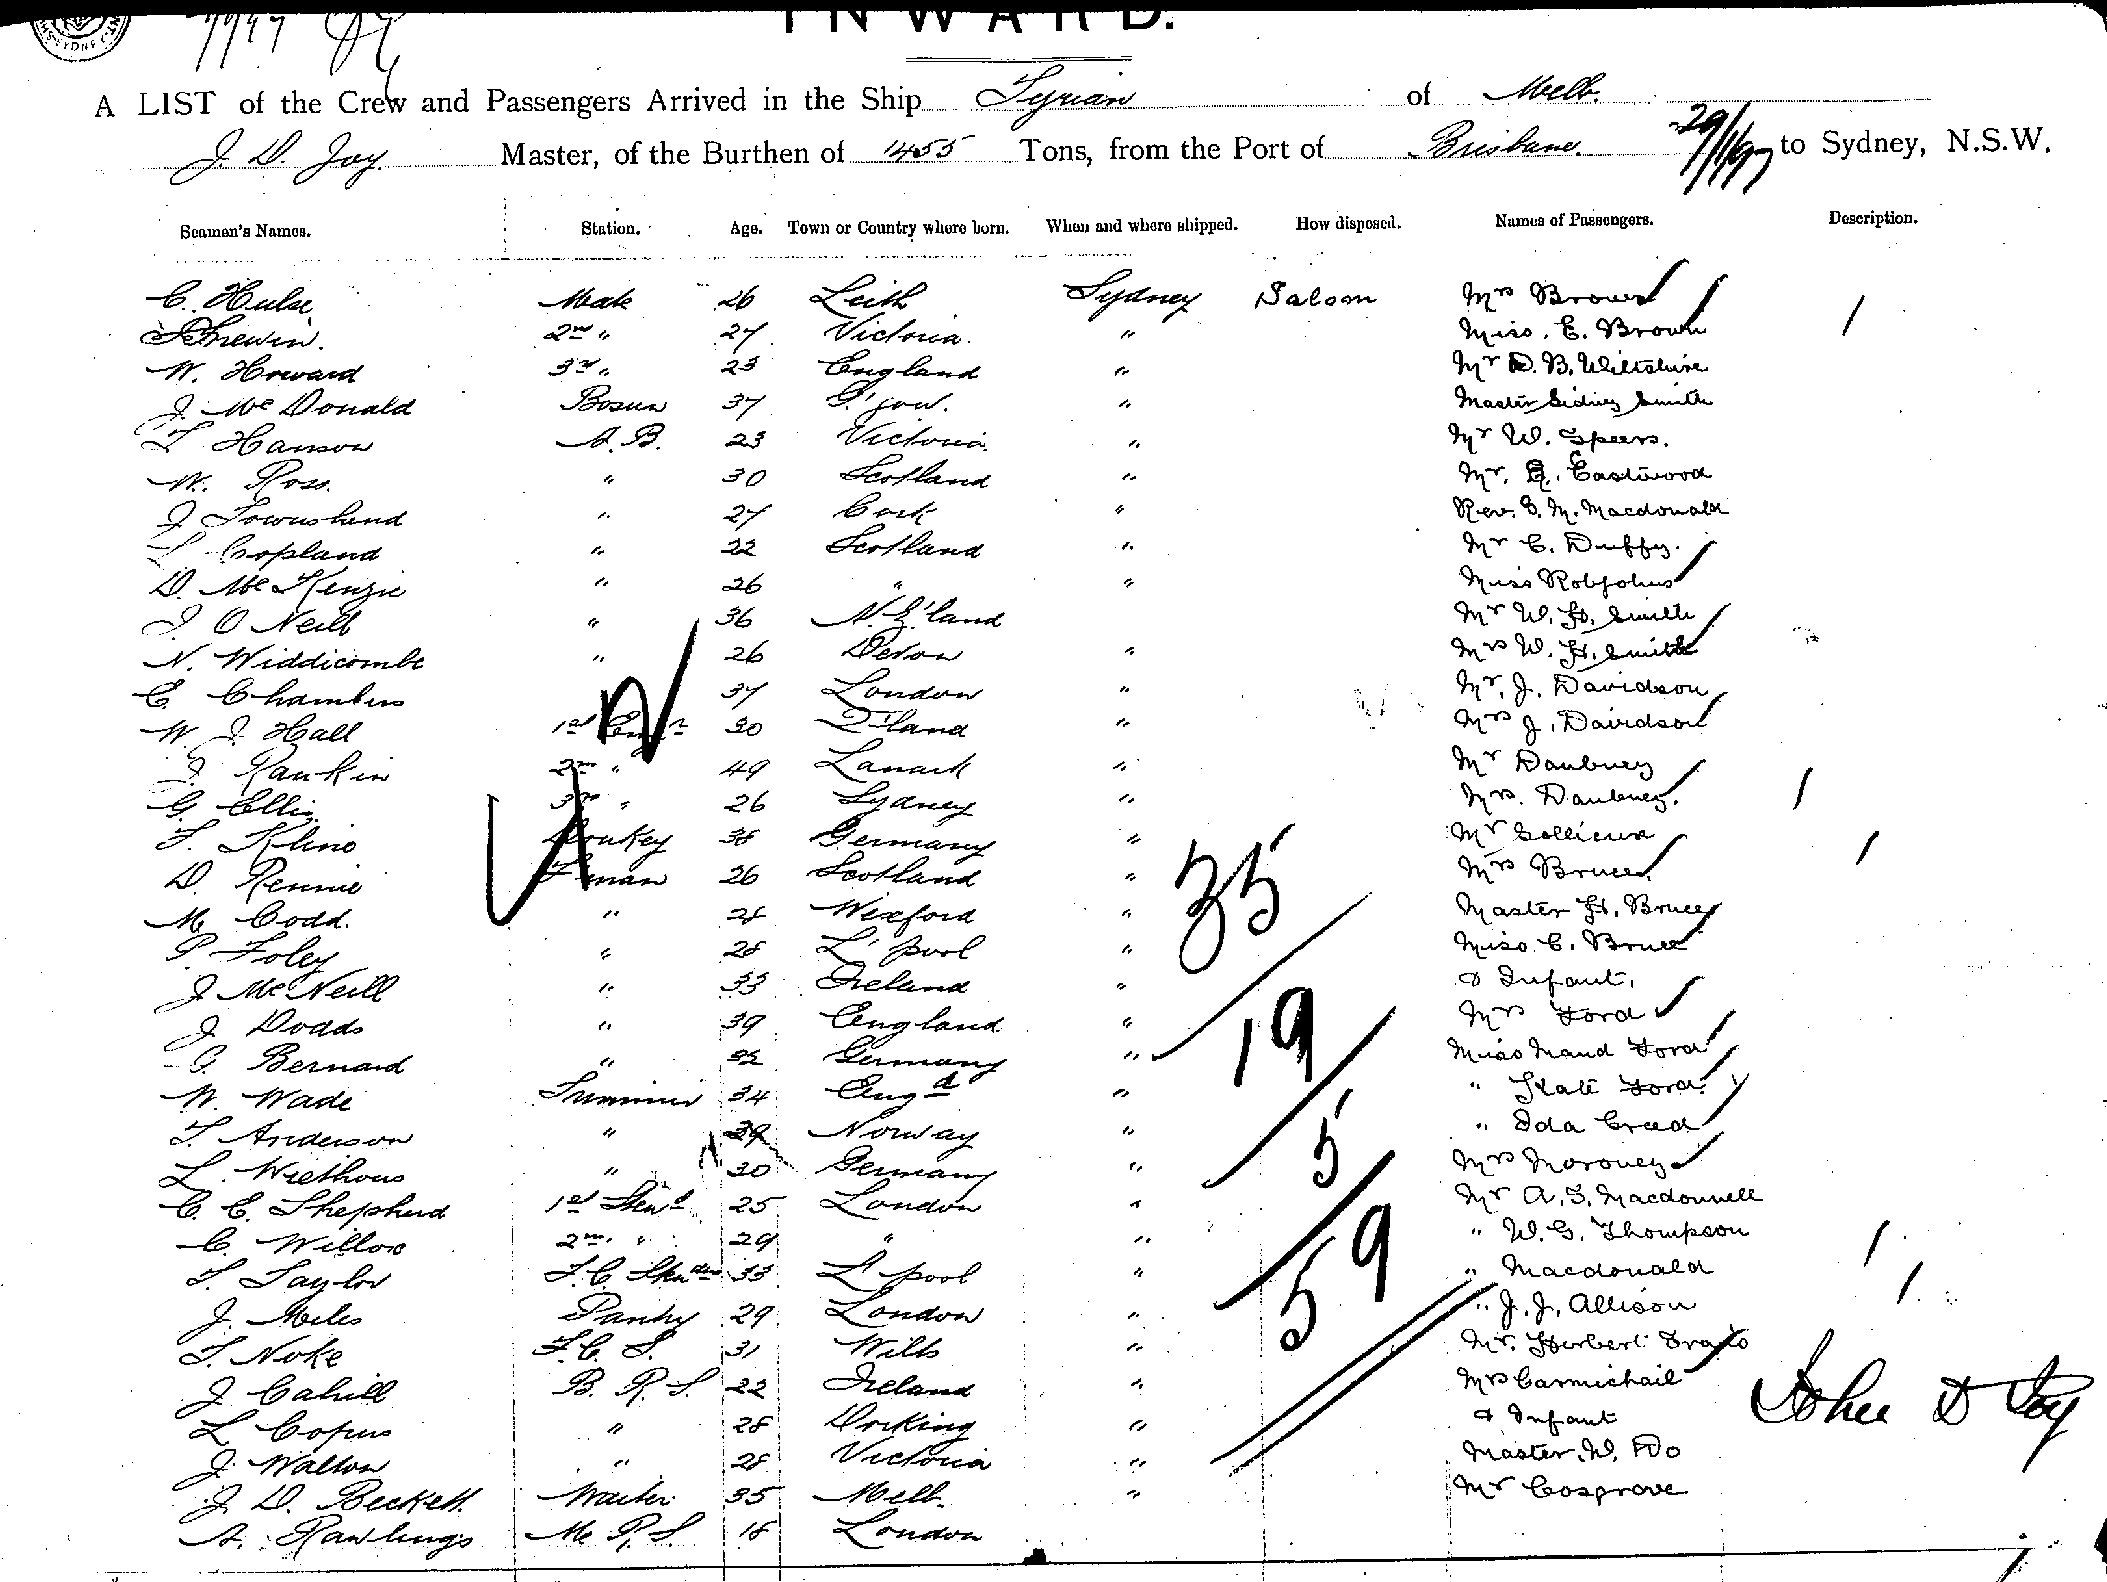 INWARD.
A LIST of the Crew and Passengers Arrived in the Ship Tyrian of Melb.
J. D. Joy Master, of the Burthen of 1455 Tons, from the Port of Brisbane. 29/1/97 to Sydney, N.S.W.
Seamen's Names. Station. Age. Town or Country where born. When and where shipped. How disposed. Names of Passengers. Description.
C. Hulse Mate 26 Leith Sydney Saloon Mrs Brown
Shewin. 2nd " 27 Victoria. " Miss. E. Brown
W. Howard 3rd " 23 England " Mr D. B. Wiltshire
J. McDonald Bosun 37 G'gow. " Master Sidney Smith
T Hanson A.B. 23 Victoria. " Mr W. Speers.
W. Ross. " 30 Scotland " Mr. Eastwood
J Townshend " 27 Cork " Rev. G. M. Macdonald
Copland " 22 Scotland " Mr C. Duffy.
D. McKenzie " 26 " " Miss Robjohns
J. O Neill " 36 N. Z'land Mr W. H. Smith
N. Widdicombe " 26 Devon " Mrs W. H. Smith
E Chambers 37 London " Mr. J. Davidson
W. J. Hall 1st Engr 30 Q'land " Mrs J. Davidson
J. Rankin 2nd " 49 Lanark " Mr Daubney
G. Ellis 3rd " 26 Sydney " Mrs. Daubney.
F. Kline Donkey 38 Germany " Mr
D. Rennie Fireman 26 Scotland " Mrs Bruce.
M. Codd. " 28 Wexford " Master H. Bruce
P. Foley " 28 L'pool " Miss C. Bruce
J. McNeill " 33 Ireland " & Infant.
J. Dodds " 39 England " Mrs Ford
G. Bernard " 32 Germany " Miss Maud Ford
W. Wade Trimmer 34 Engd " " Kate Ford.
T. Anderson " 39 Norway " " Ida Creed
L. Wiethous " 30 Germany " Mrs Moroney
C. E. Shepherd 1st Stewd 25 London " Mr A. S. Macdonnell
C. Willox 2nd " 29 " " " W. G. Thompson
T. Taylor F.C. 33 L'pool " " Macdonald
J. Miles Pantry 29 London " " J. J. Allison
T. Noke F. C. S. 31 Wilts " Mr. Herbert
J. Cahill B. R. S. 22 Ireland " Mrs Carmichail
L Copus " 28 Dorking " & Infant
J. Walton " 28 Victoria " Master. W. Do
J. D. Beckett Waiter 35 Melb. " Mr Cosgrove
A. Rawlings M. R. S. 18 London
35
19
5
59
John D Joy